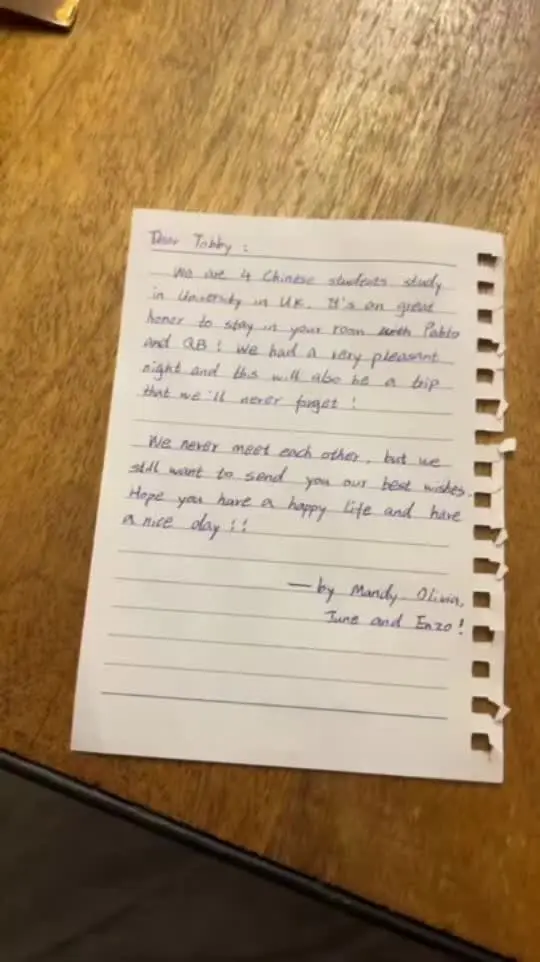 Dear Tobby :
We are 4 Chinese students study
in University in UK. It's an great
honor to stay in your room with Pablo
and QB! We had a very pleasant
night and this will also be a trip
that we'll never forget!
We never meet each other, but we
still want to send you our best wishes.
Hope you have a happy life and have
a nice day!!
—by Mandy. Olivia,
June and Enzo!